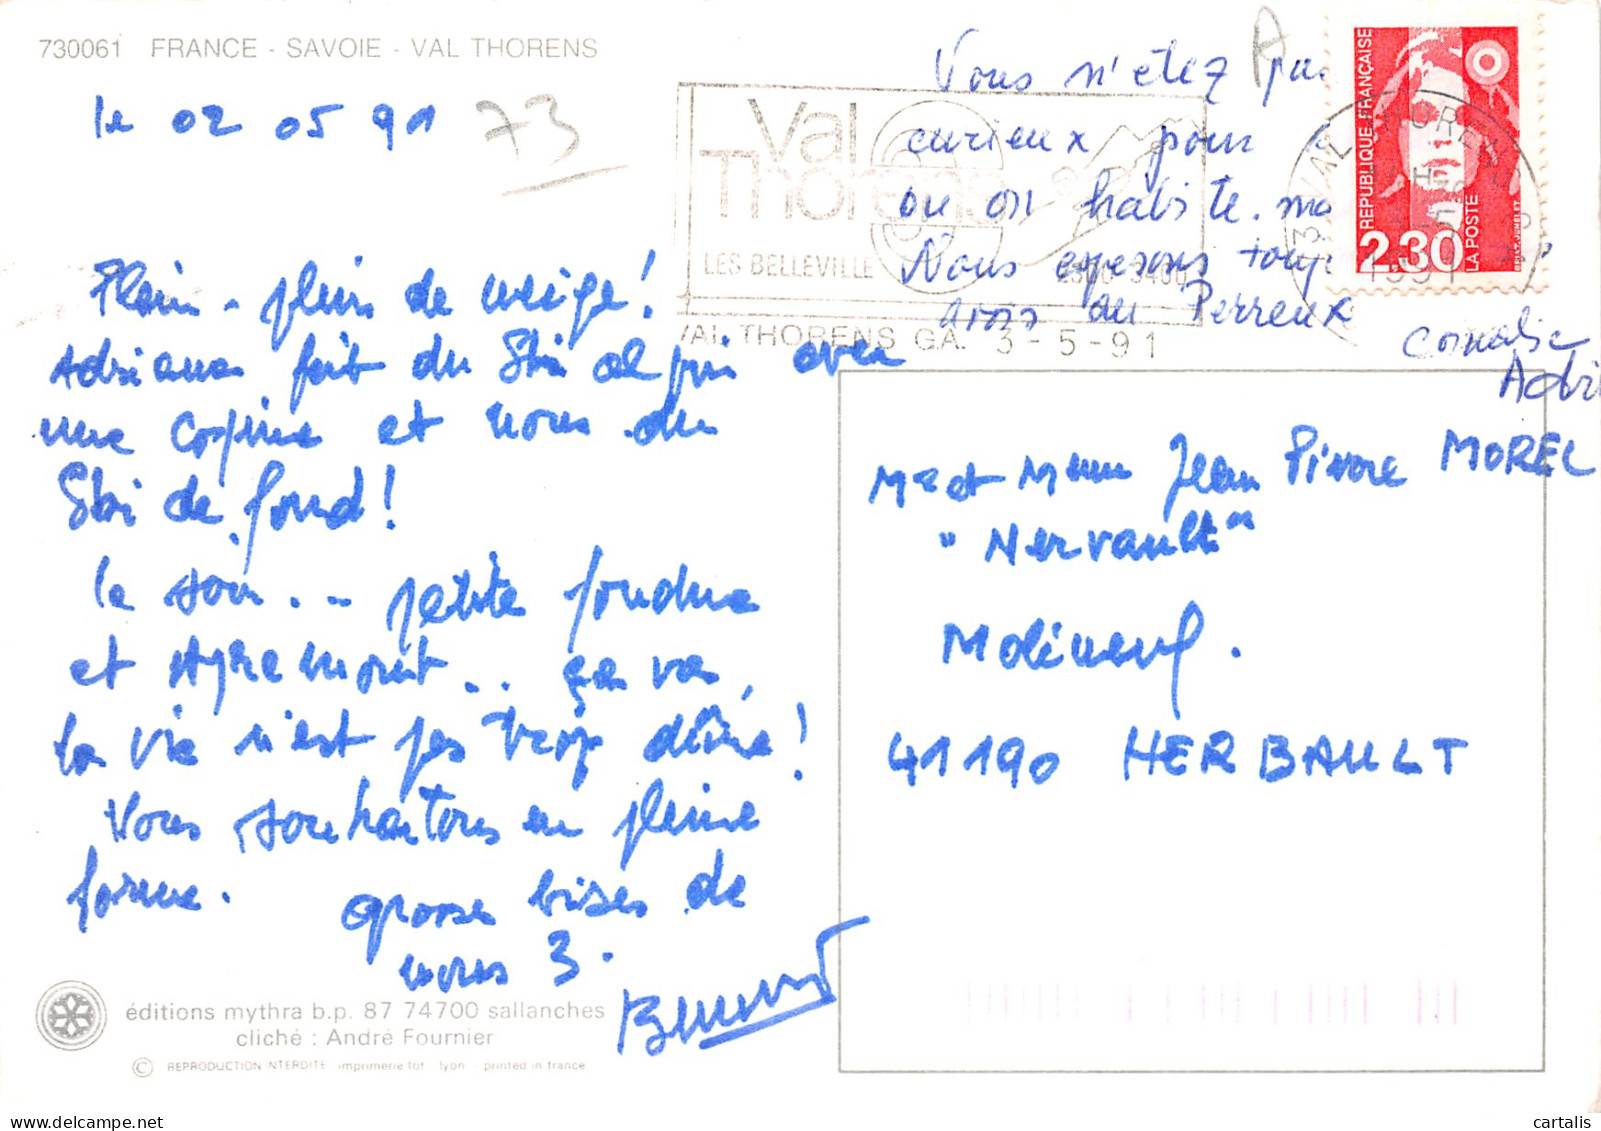 730061 FRANCE - SAVOIE - VAL THORENS
le 02 05 91
73
Plein - plein de neige!
Adriana fait du Ski alpin avec
une copine et nous du
Ski de fond!
le soir... petite fondue
et apremont... ça va,
la vie n'est pas trop dure!
Vous souhaitons en pleine
forme.
grosses bises de
nous 3.
éditions mythra b.p. 87 74700 sallanches
cliché : André Fournier
© REPRODUCTION INTERDITE imprimerie lyon printed in france
Vous n'êtez pas
curieux pour
ou on habite.
Nous espérons
au Perreux
Val
Thorens
LES BELLEVILLE
VAL THORENS GA. 3-5-91
REPUBLIQUE FRANÇAISE
2.30
LA POSTE
1991
Mr et Mme Jean Pierre MOREL
"Nervault"
Molineuf.
41190 HERBAULT
cartalis - delcampe.net